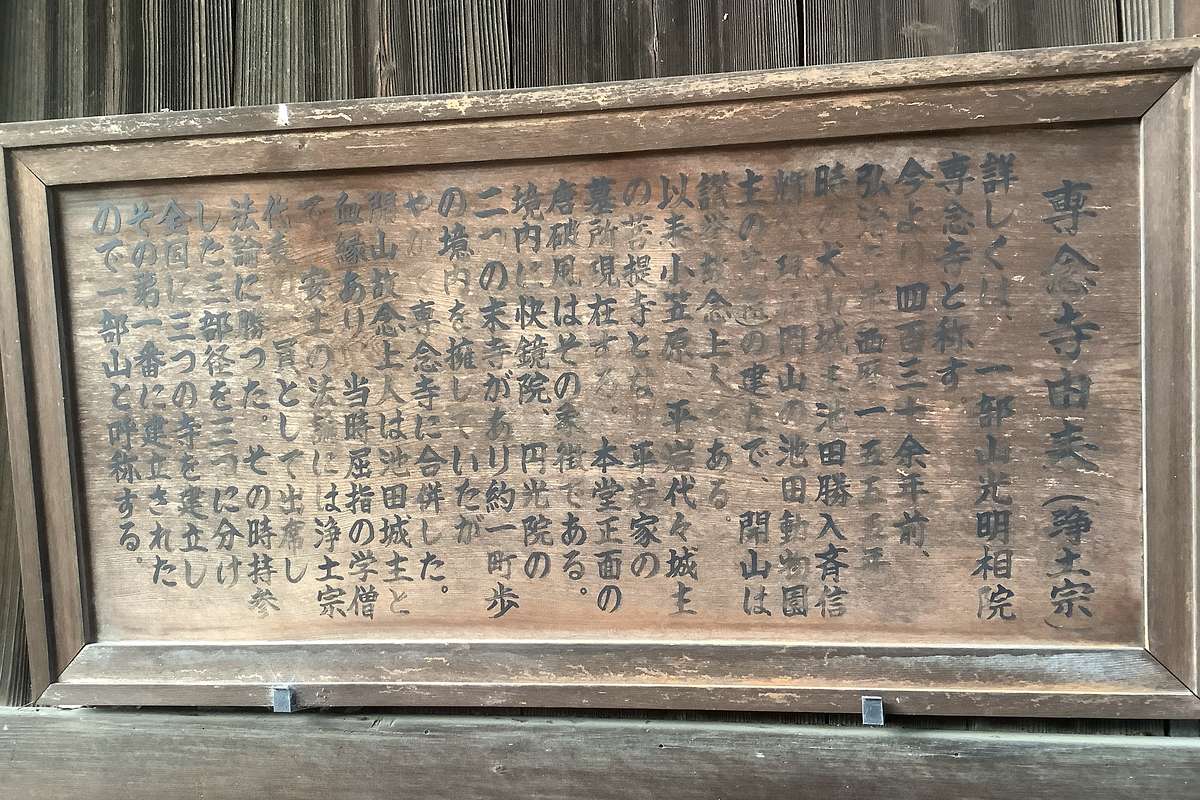 専念寺由来(浄土宗)
詳しくは、一部山光明相院
専念寺と称す。
今より四百三十余年前、
弘治 年西暦一五五五
時の犬山城主池田勝入斉信
輝 の池田動物園
主の の建立で、開山は
讃誉故念上人である。
以来小笠原、平岩代々城主
の菩提寺となり平岩家の
墓所現在する。本堂正面の
唐破風はその象徴である。
境内に快鏡院、円光院の
二つの末寺があり約一町歩
の境内を擁していたが
や 専念寺に合併した。
開山故念上人は池田城主と
血縁あり 当時屈指の学僧
で 安土の法論には浄土宗
代表の一員として出席し
法論に勝った。その時持参
した三部径を三つに分け
全国に三つの寺を建立し
その第一番に建立された
ので一部山と呼称する。